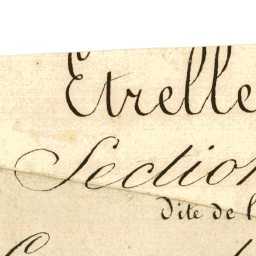 Etrelle
Section
dite de l